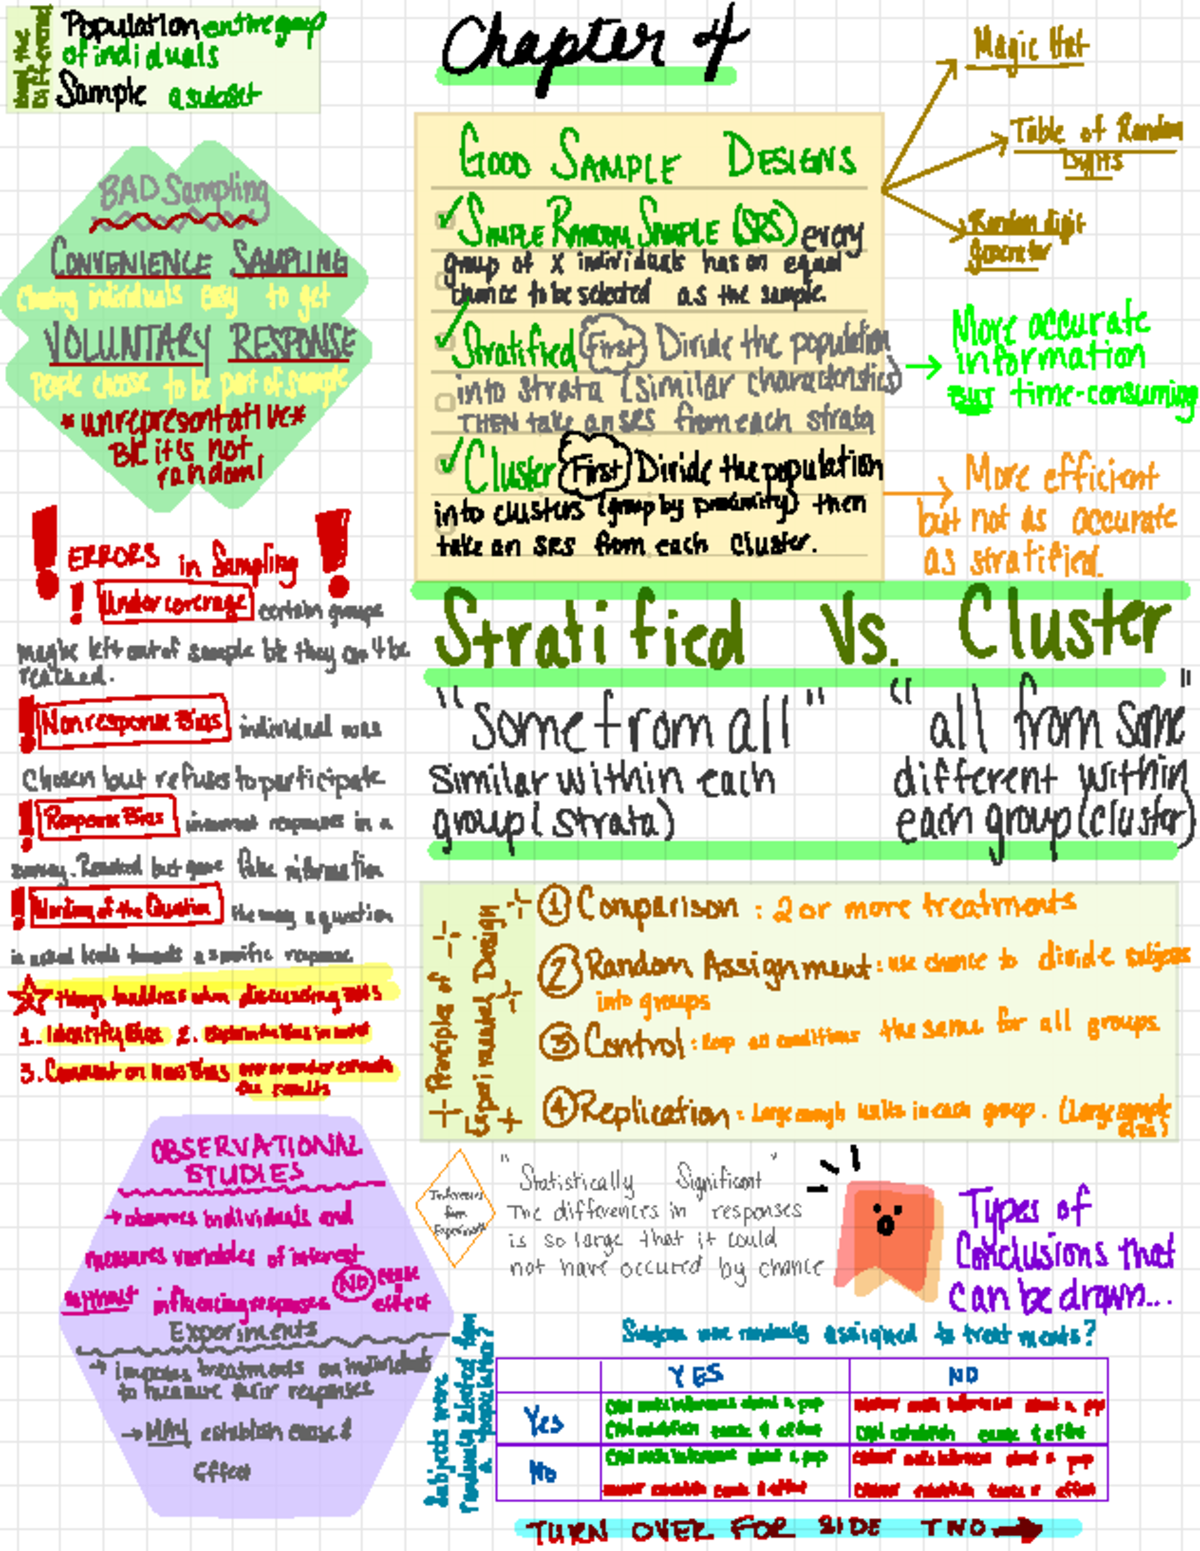 Know the Difference
Population entire group
of individuals
Sample a subset
Chapter 4
Magic Hat
Table of Random
Digits
Random digit
generator
BAD Sampling
CONVENIENCE SAMPLING
Chosing individuals easy to get
VOLUNTARY RESPONSE
People choose to be part of sample
*unrepresentative*
B/c it is not
random!
GOOD SAMPLE DESIGNS
SIMPLE RANDOM SAMPLE (SRS) every
group of X individuals has an equal
chance to be selected as the sample.
Stratified First Divide the population
into strata (similar characteristics)
THEN take an SRS from each strata
Cluster First Divide the population
into clusters (group by proximity) then
take an SRS from each cluster.
More accurate
information
BUT time-consuming
More efficient
but not as accurate
as stratified.
ERRORS in Sampling
! Undercoverage certain groups
maybe left out of sample b/c they can't be
reached.
! Nonresponse Bias individual was
Chosen but refuses to participate
! Response Bias incorrect responses in a
survey. Reached but gave fake information
! Wording of the Question the way a question
is asked leads towards a specific response
Things to address when discussing BIAS
1. Identify Bias 2. Explain the Bias in context
3. Comment on how Bias over or under estimate
the results
Stratified Vs. Cluster
"Some from all" "all from some"
Similar within each different within
group (strata) each group (cluster)
Principles of
Experimental Design
① Comparison : 2 or more treatments
② Random Assignment : use chance to divide subjects
into groups
③ Control : keep all conditions the same for all groups.
④ Replication : Large enough units in each group. (Large sample
size)
OBSERVATIONAL
STUDIES
→ observes individuals and
measures variables of interest
without influencing responses NO cause
effect
Experiments
→ imposes treatments on individuals
to measure their responses
→ MAY establish cause &
Effect
Inferences
from
Experiments
"Statistically Significant"
The differences in responses
is so large that it could
not have occured by chance
Types of
Conclusions that
can be drawn...
Subjects were randomly assigned to treatments?
Subjects were
randomly selected from
a population?
YES NO
Yes
Can make inferences about a pop
Can establish cause & effect
No
Can make inferences about a pop
cannot make inference about a pop
Cannot establish cause & effect
TURN OVER FOR SIDE TWO →